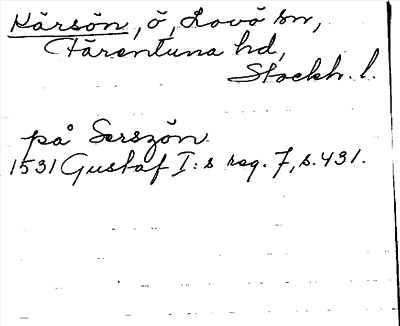 Kärsön, ö, Lovö sn,
Färentuna hd,
Stockh. l.
på Serszön
1531 Gustaf I:s reg. 7, s. 431.